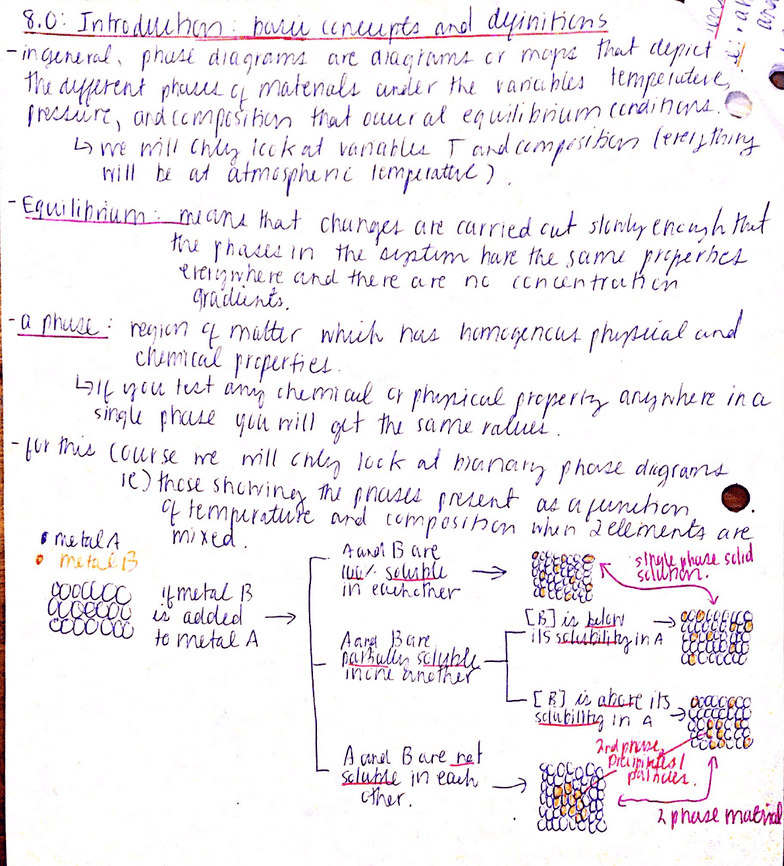 8.0: Introduction: basic concepts and definitions
- in general, phase diagrams are diagrams or maps that depict
the different phases of materials under the variables temperature,
pressure, and composition that occur at equilibrium conditions.
↳ we will only look at variables T and composition (everything
will be at atmospheric temperature).
- Equilibrium: means that changes are carried out slowly enough that
the phases in the system have the same properties
everywhere and there are no concentration
gradients.
- a phase: region of matter which has homogenous physical and
chemical properties.
↳ If you test any chemical or physical property anywhere in a
single phase you will get the same values.
- for this course we will only look at bianary phase diagrams
ie) those showing the phases present as a function
of temperature and composition when 2 elements are
mixed.
• metal A
• metal B
if metal B
is added
to metal A
A and B are
100% soluble
in each other
single phase solid
solution.
A and B are
partially soluble
in one another
[B] is below
its solubility in A
[B] is above its
solubility in A
2nd phase,
particles.
A and B are not
soluble in each
other.
2 phase material